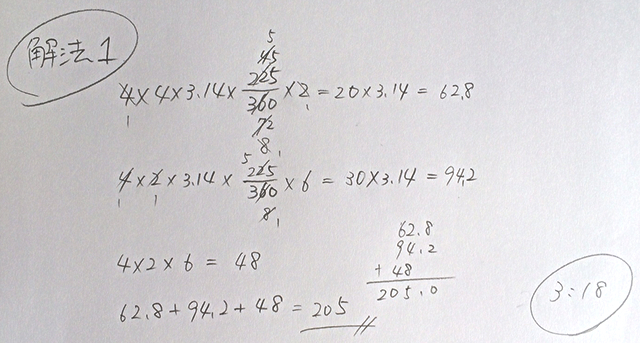 解法1
4×4×3.14×225/360×2=20×3.14=62.8
4×2×3.14×225/360×6=30×3.14=94.2
4×2×6=48
62.8+94.2+48=205
62.8
94.2
+48
205.0
3:18